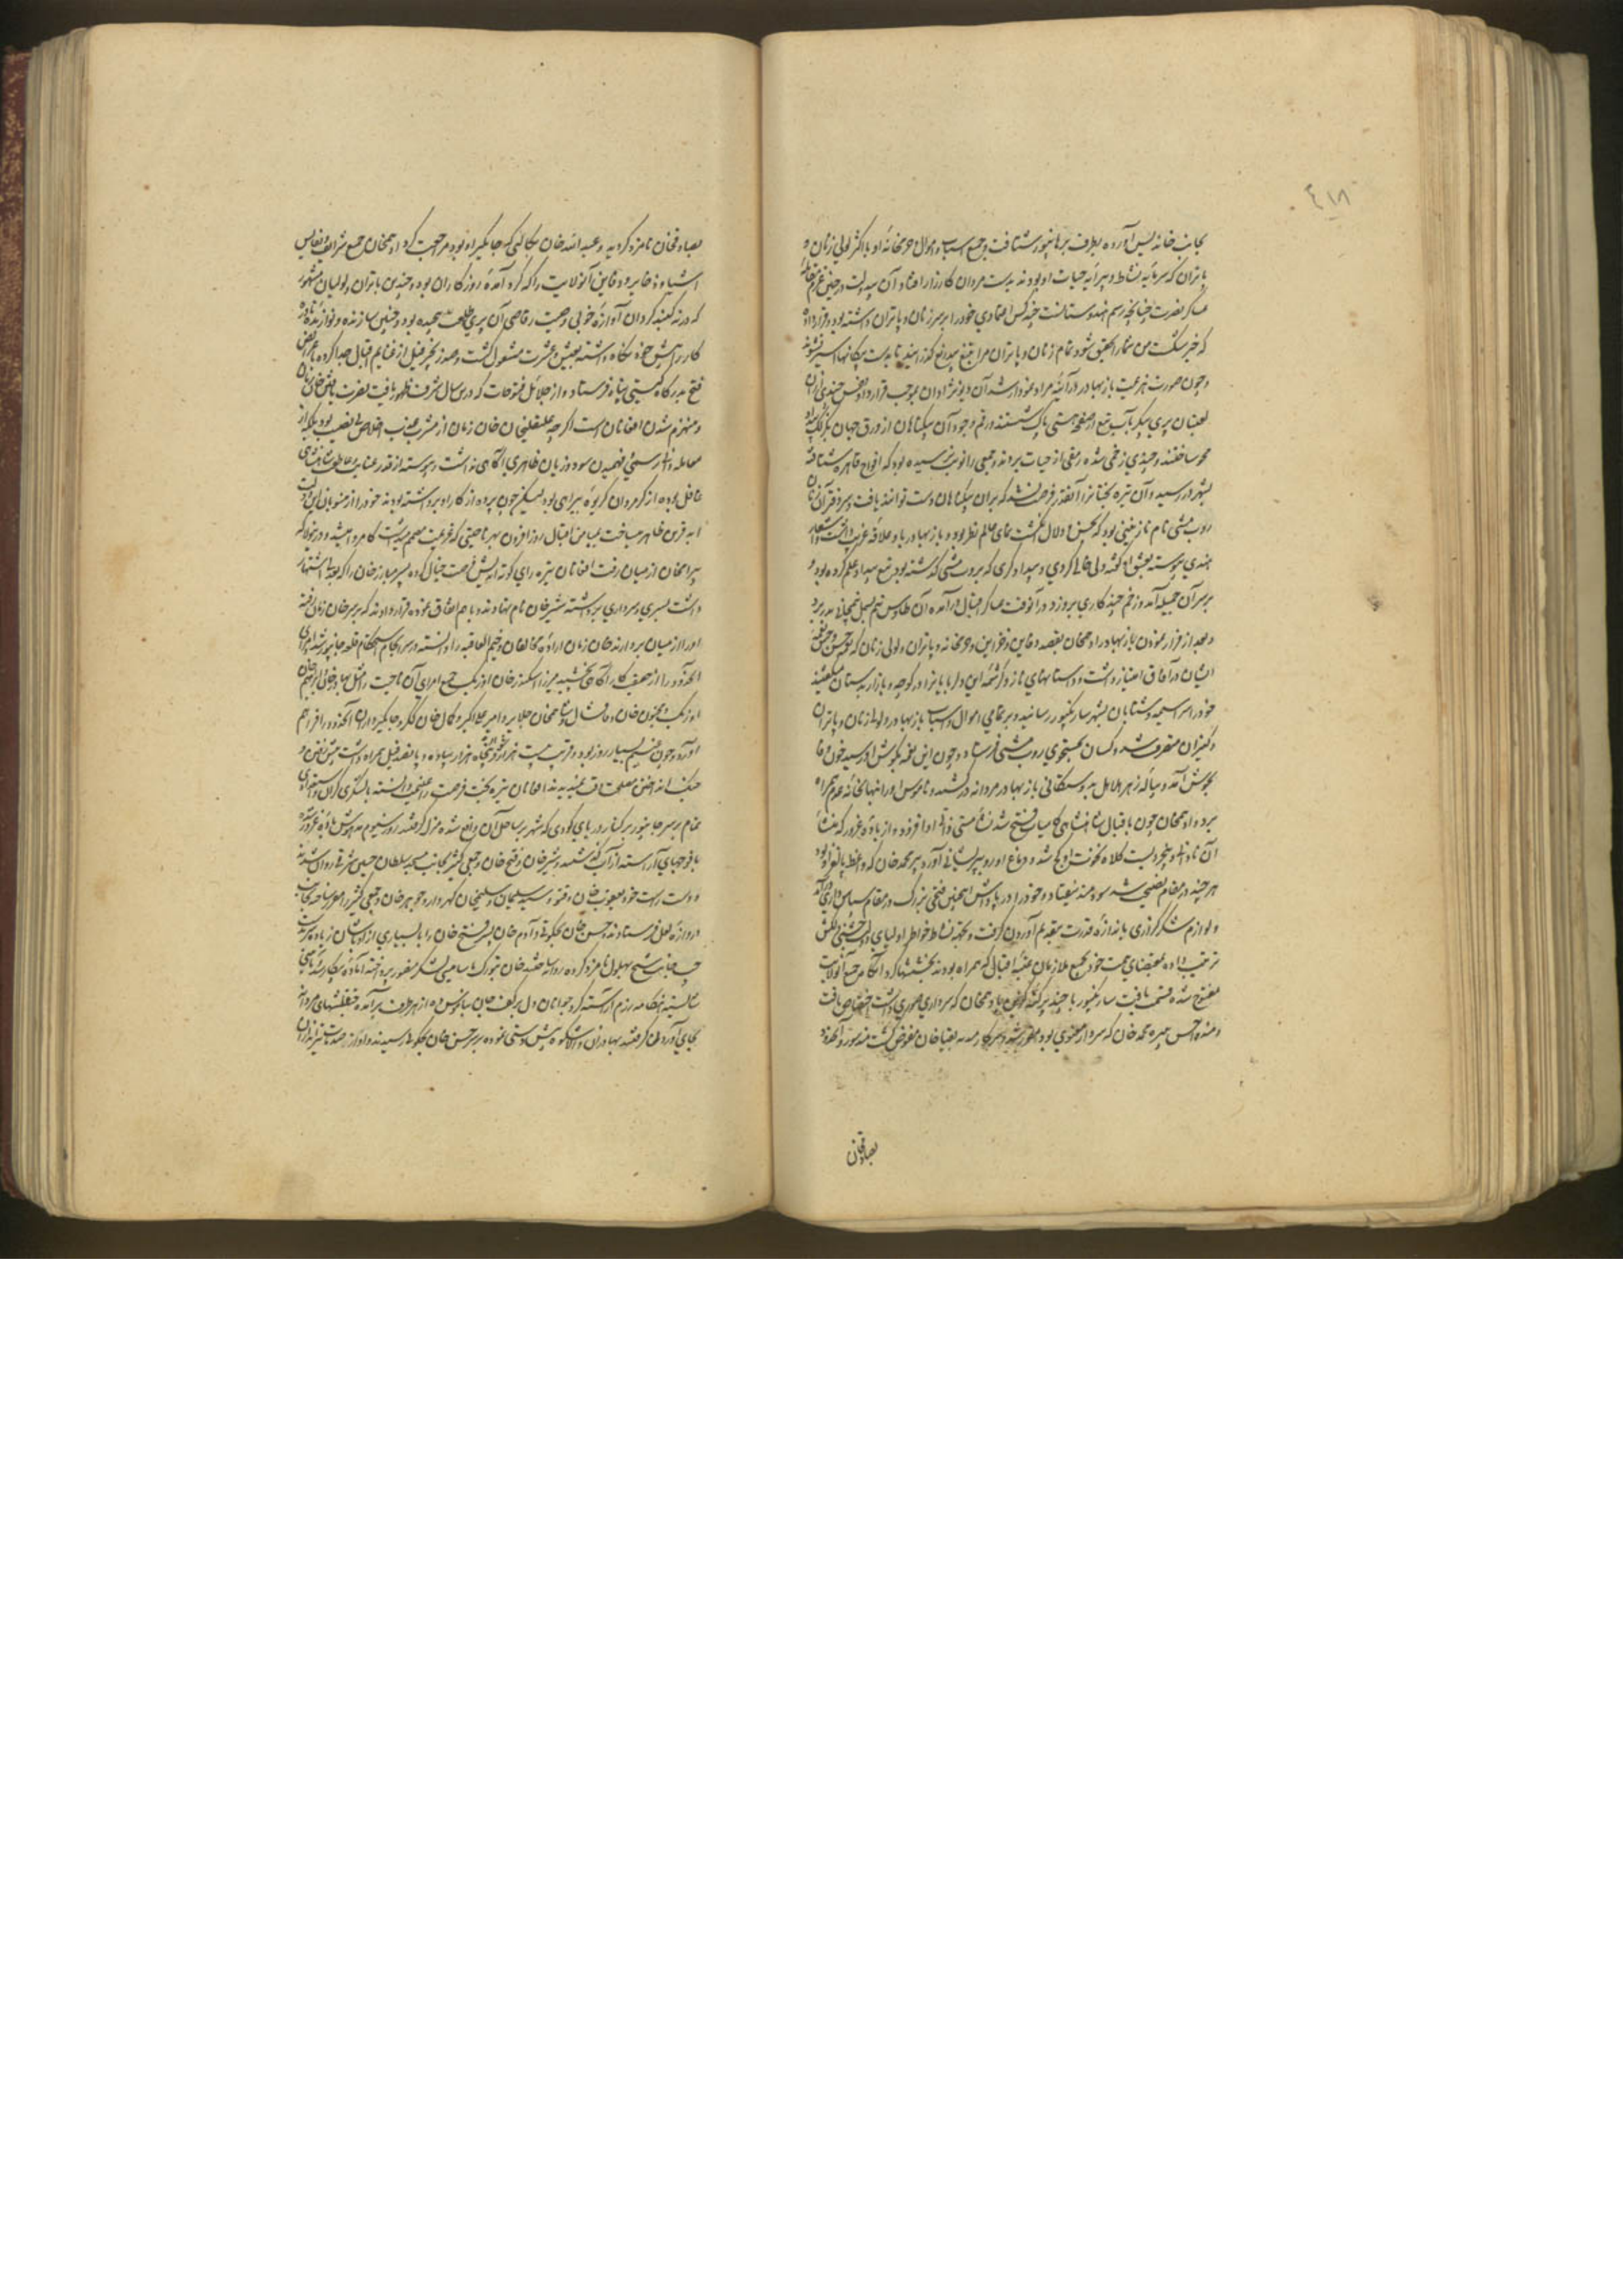 ٤١٨
بجانب خاندیس آورده بطرف برهانپور شتافت و جمیع اسباب و اموال و حرمخانه او با اکثر لولی زنان و
پاتران که سرمایه نشاط و پیرایه حیات او بودند بدست مردان کارزار افتاد و آن بیدولت در حین عزم مقابله
عساکر نصرت چنانچه رسم هندوستانست چند کس اعتمادی خود را بر سر زنان و پاتران داشته بود و قرار داده
که خبر شکست من شما را تحقیق شود تمام زنان و پاتران مرا بتیغ بیدریغ گذرانید تا بدست بیگانها اسیر نشوند
و چون صورت هزیمت بازبهادر در آئینه مراد نمودار شد آن دیونژادان بموجب قرارداد بعضی چندی ازان
لعبتان پری پیکر بآب تیغ از صفحه هستی پاک شستند و رقم وجود آن بیگناهان از ورق جهان
محو ساختند و چندی زخمی شده رمقی از حیات بردند و جمعی را نوبت نرسیده بود که افواج قاهره شتافته
بشهر در رسید و آن تیره بختانرا آنقدر فرصت نشد که بران بیگناهان دست توانند یافت و سر دفتر آن زنان
روپ متی نام نازنینی بود که بحسن و دلال انگشت نمای عالم نظر بود و بازبهادر باو علاقه غریب داشت و اشعار
هندی پیوسته بعشق او گفته دلی خالی کردی و بیدادگری که بر روپ متی گذاشته بود تیغ بیداد علم کرده بود و
بر سر آن جمیله آمد و زخم چند کاری بر وزد در آنوقت عساکر اقبال درآمده آن طاوس نیم بسمل نیمجانی بدر برد
و بعد از فرار نمودن بازبهادر ادهمخان بقصد دفاین و خزاین و حرمخانه و پاتران و لولی زنان که بحسن و حسن نغمه
ایشان در آفاق امتیاز داشت و داستانهای ناز و کرشمه این دلربایانرا در کوچه و بازار بدستان میگفتند
خود را سراسیمه و شتابان بشهر سارنگپور رسانید و بر تمامی اموال و اسباب بازبهادر و لولی زنان و پاتران
و کنیزان متصرف شد و کسان بجستجوی روپ متی فرستاد و چون این نغمه بگوش او رسید خون وفا
بجوش آمد و پیاله زهر هلاهل بدوستکامی بازبهادر مردانه در کشید و ناموس او را بنهانخانه عدم همراه
برد و ادهمخان چون باقبال شاهنشاهی کامیاب فتح شد نشأ مستی ذاتی او افزود و از باده غرور که منشأ
آن نادانی و بیخردیست کلاه نخوت او کج شد و دماغ او رو به پریشانی آورد و پیر محمد خان که واعظ
هر چند در مقام نصیحت شد سودمند نیفتاد و خود را در پاداش اینچنین فتحی بزرگ در مقام سپاس داری درآمد
و لوازم شکرگزاری باندازه قدرت بتقدیم آوردن گرفت و بجهته نشاط خواطر اولیای دولت جشنی دلکش
ترتیب داده بمقتضای همت خود بجمیع ملازمان عتبه اقبال که همراه بودند بخششها کرد آنگاه جمیع آنولایت
مفتوح شده قسمت یافت سارنگپور با چند پرگنه گزین بادهمخان که سرداری صوری داشت اختصاص یافت
و مندو اجین به پیر محمد خان که سردار معنوی بود مقرر شد و سرکار هندیه بقیاخان مفوض گشت مندسور و آنحدود
بصادقخان
بصادقخان نامزد گردید و عبدالله خان بکالپی که جایگیر او بود مرحمت کرد ادهمخان جمیع شرایف و نفایس
اشیاء و ذخایر و دفاین آنولایت را که گرد آمده روزگاران بود و چندین پاتران و لولیان مشهور
که در نه گنبد گردان آوازه خوبی و صیت رقاصی آن پری طلعتان پیچیده بود و چندین سازنده و نوازنده نادره
کار را پیش خود نگاه داشته بعیش و عشرت مشغول گشت و چند زنجیر فیل از غنایم اقبال جدا کرده با عرایض
فتح بدرگاه گیتی پناه فرستاد و از جلائل فتوحات که درین سال شرف ظهور یافت نصرت یافتن خان زمان
و منهزم شدن افغانان است اگرچه علیقلیخان خان زمان از مشرب عذب اخلاص بی نصیب بود بلکه از
معامله دانی و رسمی فهمیدن سود و زیان ظاهری آگاهی نداشت و پیوسته از قدر عنایت عاطفت شاهنشاهی
غافل بوده از گمرهان کریوه بیراهی بود لیکن چون پرده از کار او برداشته بودند خود را از منسوبان این دولت
ابد قرین ظاهر میساخت بمیامن اقبال روز افزون بهر ناحیتی که عزیمت مصمم میداشت کامروا میشد و درینولا که
بیرامخان از میان رفت افغانان تیره رای کوته اندیش فرصت خیال کرده پسر مبارزخان را که بعدلی اشتهار
داشت بسری و سرداری برداشته شیرخان نام نهادند و باهم اتفاق نموده قرار دادند که بر سر خان زمان رفته
او را از میان بردارند خان زمان اراده مخالفان وخیم العاقبه را دانسته در سرانجام استحکام قلعه جونپور شد و امرای
آنحدود را از حقیقت کار آگاهی بخشید میرزا اسکندر خان اوزبک جمیع امرای آن ناحیت را مثل بهادر خان و ابراهیم خان
اوزبک و مجنون خان و قاقشال و شاهمخان جلایر و امیر علی اکبر و کمال خان گکر و جایگیرداران آنحدود را فراهم
آورد و چون غنیم بسیار زور بود و قریب بیست هزار سوار و پنجاه هزار پیاده و پانصد فیل همراه داشت پیش رفتن و
جنگ انداختن مصلحت وقت ندیدند افغانان تیره بخت فرصت را غنیمت دانسته با لشکری گران و استعدادی
تمام بر سر جونپور بر کنار دریای کودی که شهر بر ساحل آن واقع شده منزل گرفتند روز سیوم
با فوجهای آراسته از آب گذشتند و شیرخان و فتح خان و جمعی کثیر بجانب مسجد سلطان حسین شرقی روان شدند
و دست راست خود یعقوب خان و فتو و سید سلیمان و سلیمخان کهروار و جوهرخان و جمعی کثیر را مقرر ساخته بجانب
دروازه لعل فرستادند و حسن خان بچکوتی و آدم خان پسر فتح خان را با بسیاری از اوباشان زیاده سر بدست
چپ جانب شیخ بهلول نامزد کرده روانه ساختند خان بزرگ با سامی لشکر منصور پرداخته آماده پیکار شد و بآیینی
شایسته هنگامه رزم آراسته گرد جوانان دل بر کف جان ستانی نهاده از هر طرف برآمده چپقلشهای مردانه
بجای آوردن گرفتند بهادران والا شکوه پیش دستی نموده بر سر حسن خان بچکوتی رسیدند و او از صدمات تیر اندازان